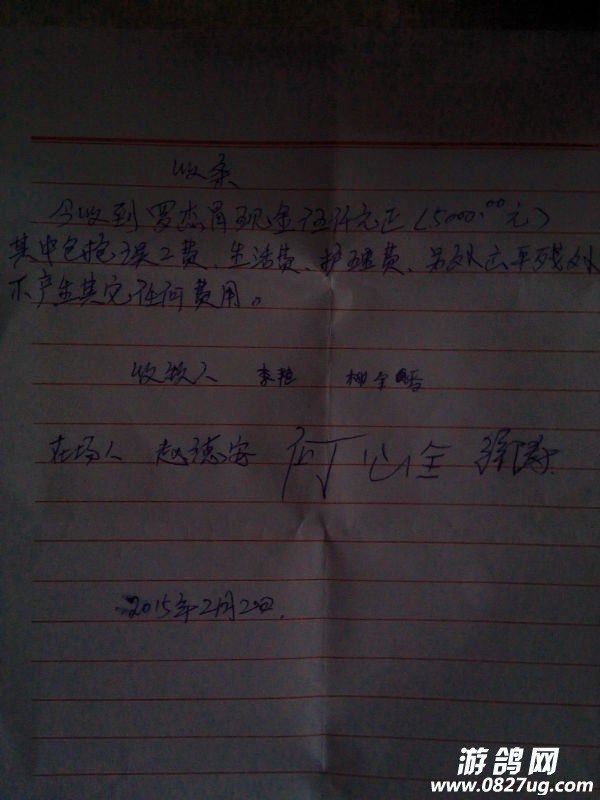 收条
今收到罗杰 现金伍仟元正(5000.00元)
其中包括误工费、生活费、护理费、另外
不产生其它任何费用。
收款人 李艳
在场人 赵德安
2015年2月2日.
游鸽网
www.0827ug.com